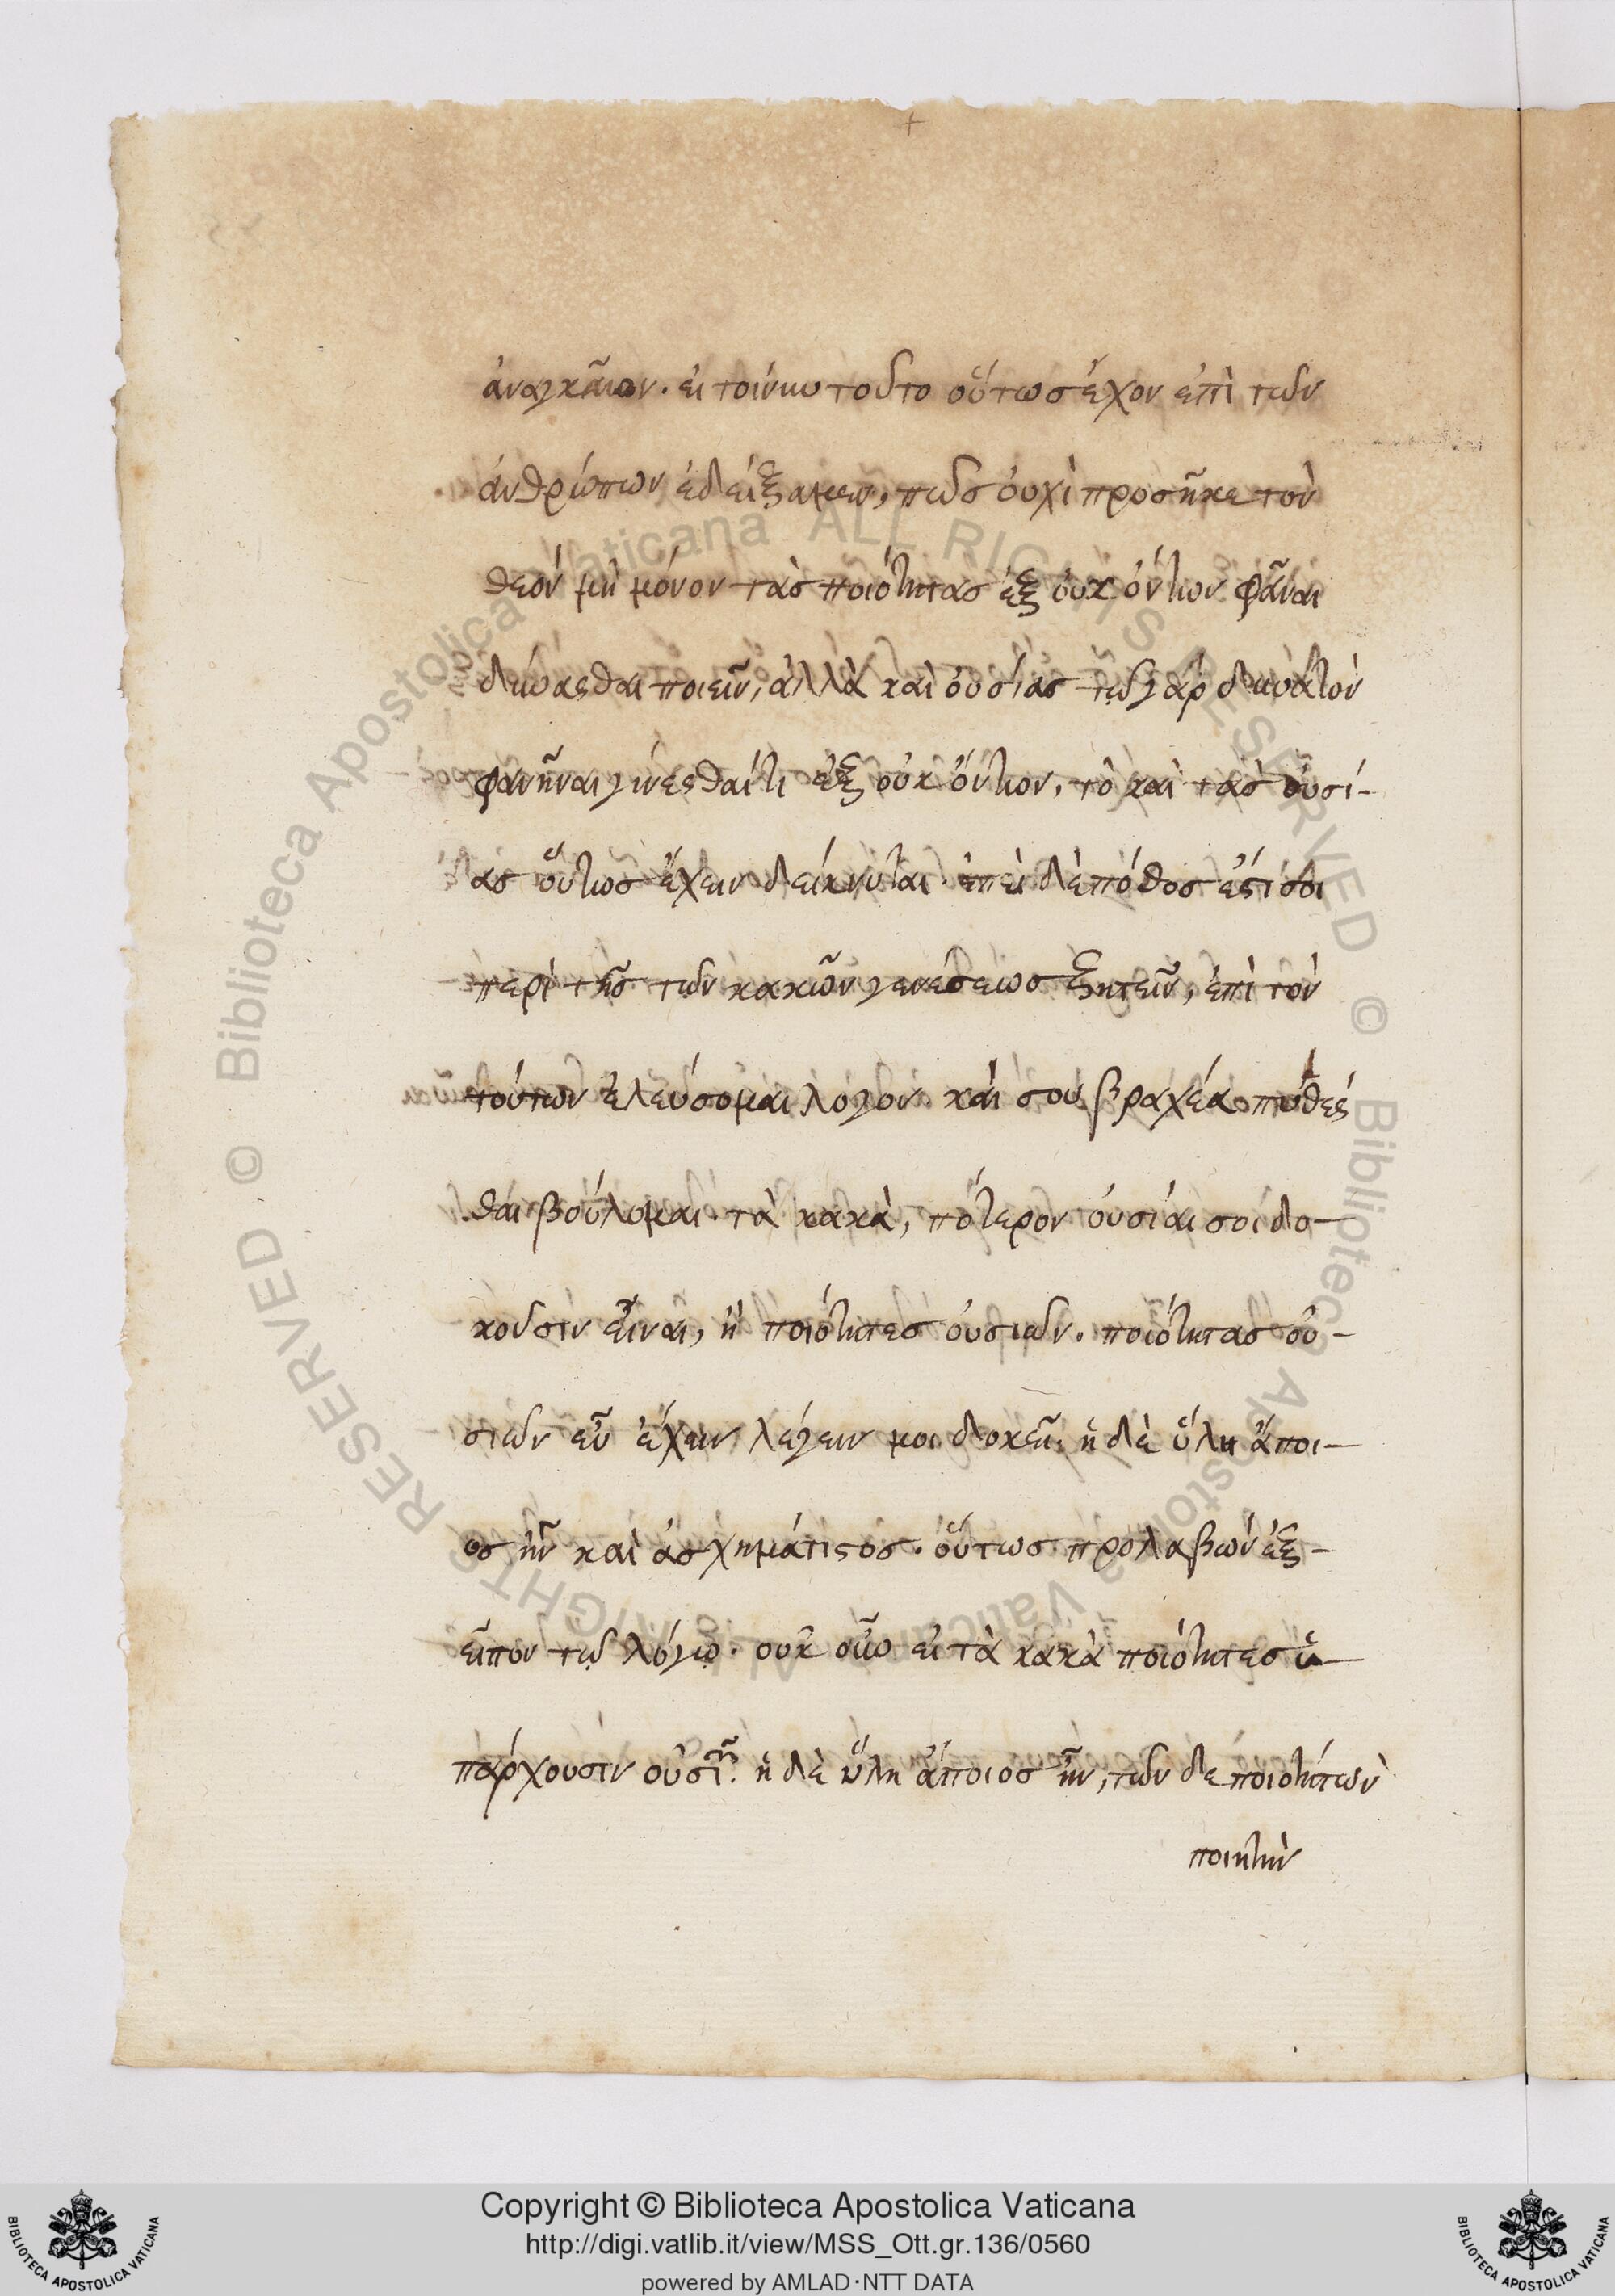 ἀναγκαῖον. εἰ τοίνυν τοῦτο οὕτωσ ἔχον ἐπὶ τῶν
ἀνθρώπων ἐδείξαμεν, πῶσ οὐχὶ προσῆκε τὸν
θεὸν μὴ μόνον τὰσ ποιότητασ ἐξ οὐκ ὄντων φᾶναι
δύνασθαι ποιεῖν, ἀλλὰ καὶ οὐσίασ τῷ γὰρ δυνατὸν
φανῆναι γίνεσθαί τι ἐξ οὐκ ὄντων, τὸ καὶ τὰσ οὐσί-
ασ οὕτωσ ἔχειν δείκνυται. ἐπεὶ δὲ πόθοσ ἐστί σοι
περὶ τῆσ τῶν κακῶν γενέσεωσ ζητεῖν, ἐπὶ τὸν
τούτων ἐλεύσομαι λόγον. καί σου βραχέα πυθέσ
θαι βούλομαι. τὰ κακὰ, πότερον οὐσίαι σοι δο-
κοῦσιν εἶναι, ἢ ποιότητεσ οὐσιῶν. ποιότητασ οὐ-
σιῶν εὖ ἔχειν λέγειν μοι δοκεῖ. ἡ δὲ ὕλη ἄποι-
οσ ἦν καὶ ἀσχημάτιστοσ. οὕτωσ προλαβὼν ἐξ-
εῖπον τῷ λόγῳ. οὐκ οὖν εἰ τὰ κακὰ ποιότητεσ ὑ-
πάρχουσιν οὐσιῶν. ἡ δὲ ὕλη ἄποιοσ ἦν, τῶν δὲ ποιοτήτων
ποιητὴν
Copyright © Biblioteca Apostolica Vaticana
http://digi.vatlib.it/view/MSS_Ott.gr.136/0560
powered by AMLAD·NTT DATA
BIBLIOTECA APOSTOLICA VATICANA
BIBLIOTECA APOSTOLICA VATICANA
© Biblioteca Apostolica Vaticana ALL RIGHTS RESERVED © Biblioteca Apostolica Vaticana ALL RIGHTS RESERVED